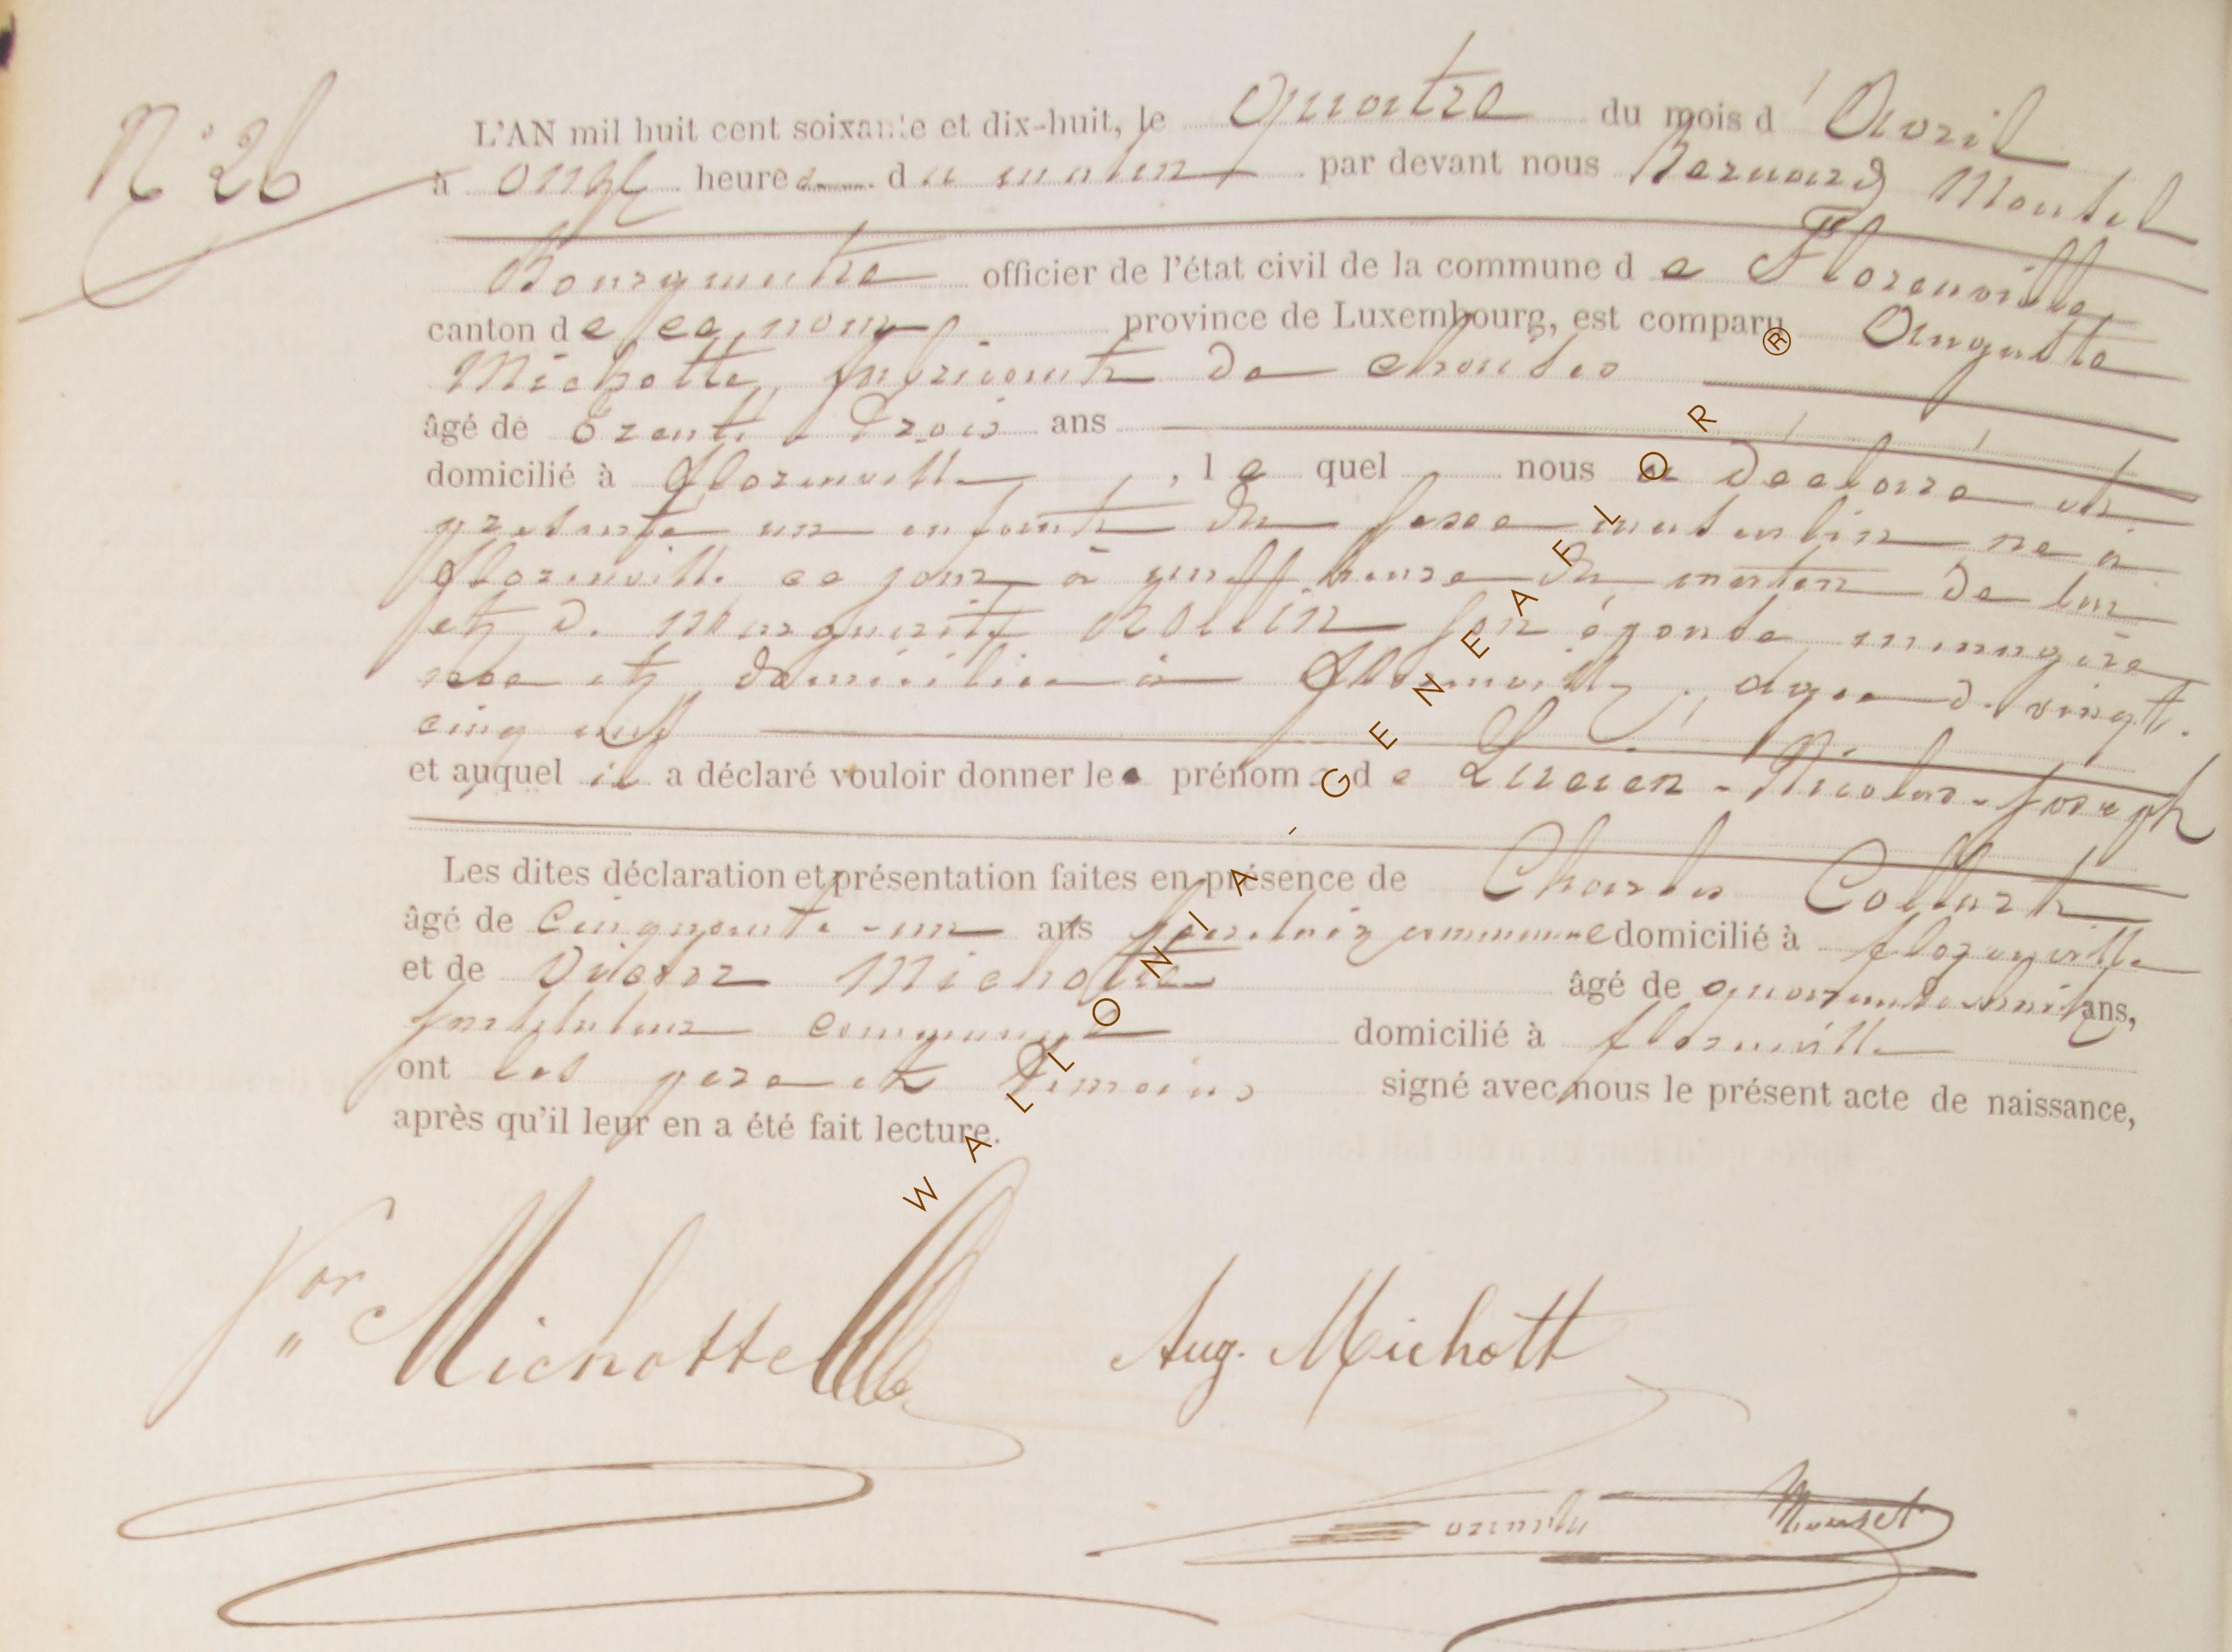 N° 26
L'AN mil huit cent soixante et dix-huit, le Quatre du mois d'Avril
à onze heures du matin par devant nous Bernard Moutel
Bourgmestre officier de l'état civil de la commune de Florenville
canton de ce nom province de Luxembourg, est comparu Auguste
Michotte, fabricant de
âgé de trente-trois ans
domicilié à Florenville, lequel nous a déclaré et
présenté un enfant du sexe masculin né à
Florenville ce jour à heure du matin de lui
et de Marguerite Rollin son épouse ménagère
née et domiciliée à Florenville, agée de vingt-
cinq ans
et auquel il a déclaré vouloir donner les prénoms de Lucien-Nicolas-Joseph
Les dites déclaration et présentation faites en présence de Charles Collart
âgé de Cinquante-un ans domicilié à florenville
et de Victor Michotte âgé de quarante-huit ans,
instituteur communal domicilié à florenville
ont les pere et témoins signé avec nous le présent acte de naissance,
après qu'il leur en a été fait lecture.
Vor Michotte Aug. Michott
WALLONIA - GENEAFLOR ®